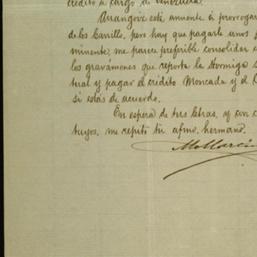 crédito a cargo de
Arrangoiz está anuente á prorrogar
de los Carrillo, pero hay que pagarle unos
minente, me parece preferible consolidar
los gravámenes que reporta la Hormiga
tral y pagar el crédito Moncada y el
si estás de acuerdo.
En espera de tres letras, y con
tuyos, me repito tu afmo. hermano.